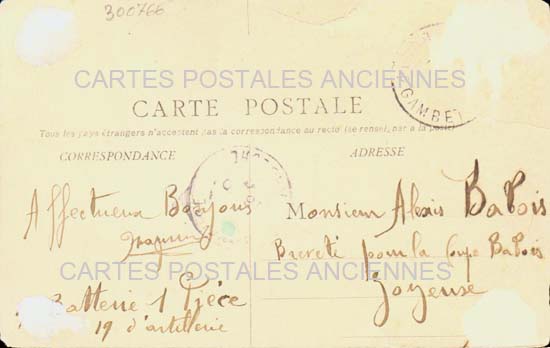 300766
CARTES POSTALES ANCIENNES
CARTE POSTALE
Tous les pays étrangers n'acceptent pas la correspondance au recto (se renseigner à la poste)
CORRESPONDANCE
ADRESSE
GAMBET
Affectueux Bonjour
Monsieur Alexis Babois
Breveté pour la Coupe Babois
Joyeuse
CARTES POSTALES ANCIENNES
Batterie 1 Pièce
19 d'artillerie